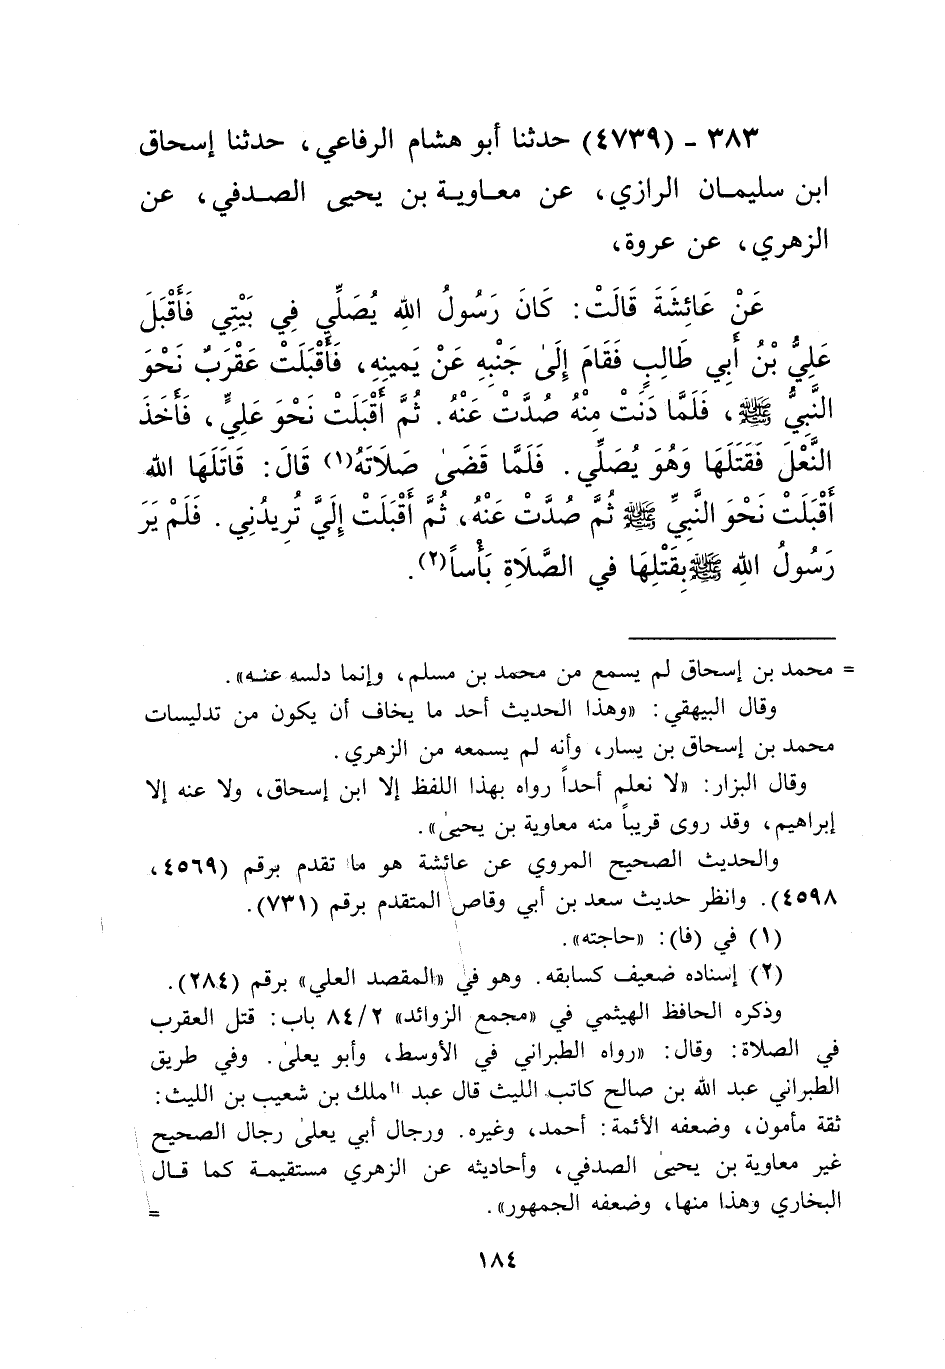 ٣٨٣ - (٤٧٣٩) حدثنا أبو هشام الرفاعي، حدثنا إسحاق
ابن سليمان الرازي، عن معاوية بن يحيى الصدفي، عن
الزهري، عن عروة،
عَنْ عَائِشَةَ قَالَتْ: كَانَ رَسُولُ اللهِ يُصَلِّي فِي بَيْتِي فَأَقْبَلَ
عَلِيُّ بْنُ أَبِي طَالِبٍ فَقَامَ إِلَىٰ جَنْبِهِ عَنْ يَمِينِهِ، فَأَقْبَلَتْ عَقْرَبٌ نَحْوَ
النَّبِيُّ ﷺ، فَلَمَّا دَنَتْ مِنْهُ صُدَّتْ عَنْهُ. ثُمَّ أَقْبَلَتْ نَحْوَ عَلِيٍّ، فَأَخَذَ
النَّعْلَ فَقَتَلَهَا وَهُوَ يُصَلِّي. فَلَمَّا قَضَىٰ صَلَاتَهُ(١) قَالَ: قَاتَلَهَا الله
أَقْبَلَتْ نَحْوَ النَّبِيِّ ﷺ ثُمَّ صُدَّتْ عَنْهُ، ثُمَّ أَقْبَلَتْ إِلَيَّ تُرِيدُنِي. فَلَمْ يَرَ
رَسُولُ اللهِ ﷺ بِقَتْلِهَا فِي الصَّلَاةِ بَأْساً(٢).
= محمد بن إسحاق لم يسمع من محمد بن مسلم، وإنما دلسه عنه».
وقال البيهقي: «وهذا الحديث أحد ما يخاف أن يكون من تدليسات
محمد بن إسحاق بن يسار، وأنه لم يسمعه من الزهري.
وقال البزار: «لا نعلم أحداً رواه بهذا اللفظ إلا ابن إسحاق، ولا عنه إلا
إبراهيم، وقد روى قريباً منه معاوية بن يحيىٰ».
والحديث الصحيح المروي عن عائشة هو ما تقدم برقم (٤٥٦٩،
٤٥٩٨). وانظر حديث سعد بن أبي وقاص المتقدم برقم (٧٣١).
(١) في (فا): «حاجته».
(٢) إسناده ضعيف كسابقه. وهو في «المقصد العلي» برقم (٢٨٤).
وذكره الحافظ الهيثمي في «مجمع الزوائد» ٨٤/٢ باب: قتل العقرب
في الصلاة: وقال: «رواه الطبراني في الأوسط، وأبو يعلىٰ. وفي طريق
الطبراني عبد الله بن صالح كاتب الليث قال عبد الملك بن شعيب بن الليث:
ثقة مأمون، وضعفه الأئمة: أحمد، وغيره. ورجال أبي يعلىٰ رجال الصحيح
غير معاوية بن يحيىٰ الصدفي، وأحاديثه عن الزهري مستقيمة كما قال
البخاري وهذا منها، وضعفه الجمهور». =
١٨٤